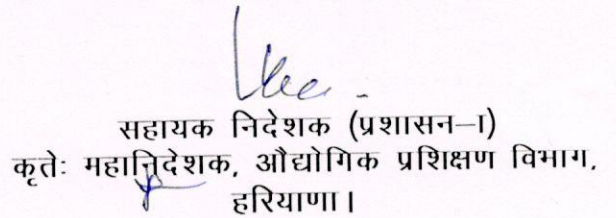 सहायक निदेशक (प्रशासन–I)
कृतेः महानिदेशक, औद्योगिक प्रशिक्षण विभाग,
हरियाणा।